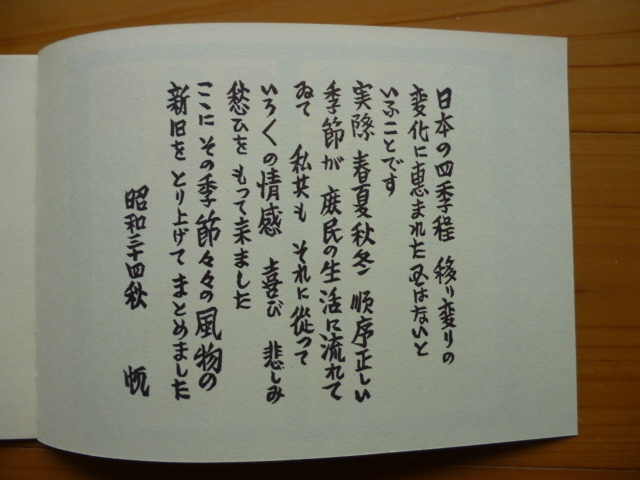 日本の四季程 移り変りの
変化に恵まれた国はないと
いふことです
実際 春夏秋冬 順序正しい
季節が 庶民の生活に流れて
ゐて 私共も それに從って
いろ〱の情感 喜び 悲しみ
愁ひを もって来ました
ここに その季節々々の風物の
新旧を とり上げて まとめました
昭和三十四秋